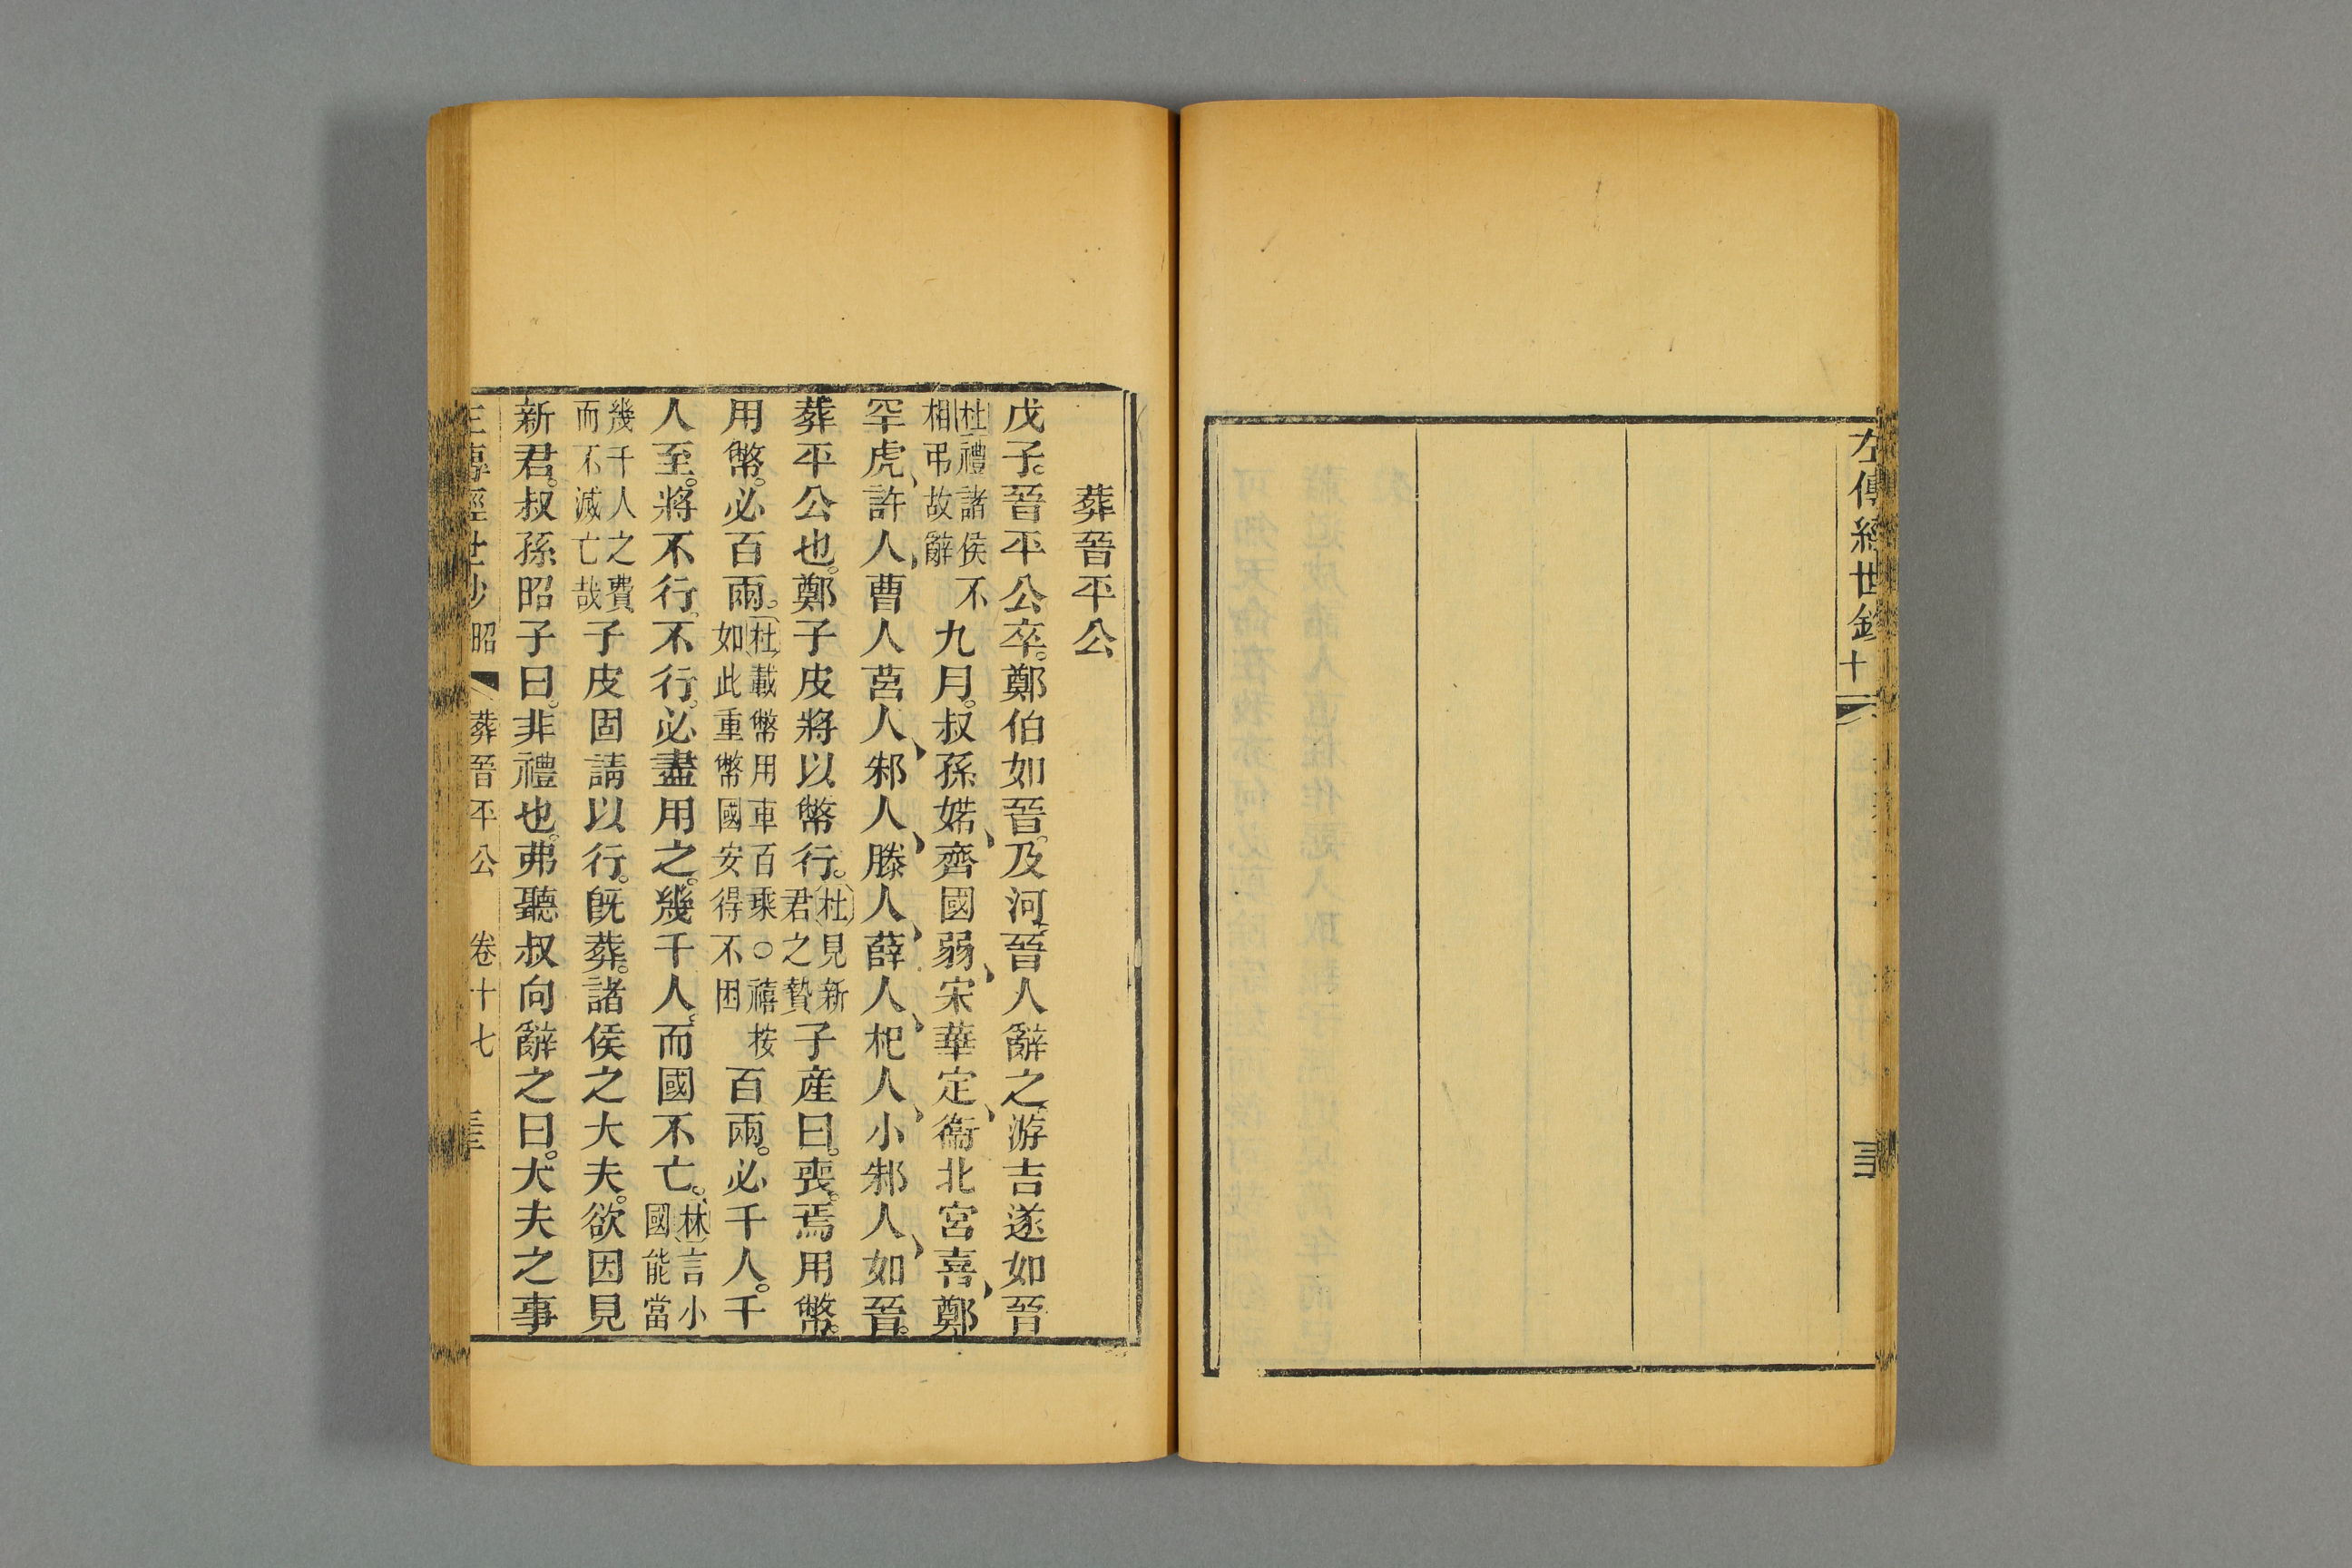 左傳經世鈔 十
葬晉平公
戊子。晉平公卒。鄭伯如晉。及河、晉人辭之、游吉遂如晉
杜禮諸侯不
相弔故辭
九月。叔孫婼、齊國弱、宋華定、衞北宮喜、鄭
罕虎、許人、曹人莒人、邾人、滕人、薛人、杞人、小邾人、如晉。
葬平公也。鄭子皮將以幣行。
杜見新
君之贄
子產曰。喪。焉用幣。
用幣。必百兩。
杜載幣用車百乘○禧按
如此重幣國安得不困
百兩。必千人。千
人至。將不行。不行。必盡用之。幾千人。而國不亡。
林言小
國能當
幾千人之費
而不滅亡哉
子皮固請以行。旣葬。諸侯之大夫。欲因見
新君。叔孫昭子曰。非禮也。弗聽叔向辭之曰。大夫之事
左傳經世鈔 昭 葬晉平公 卷十七